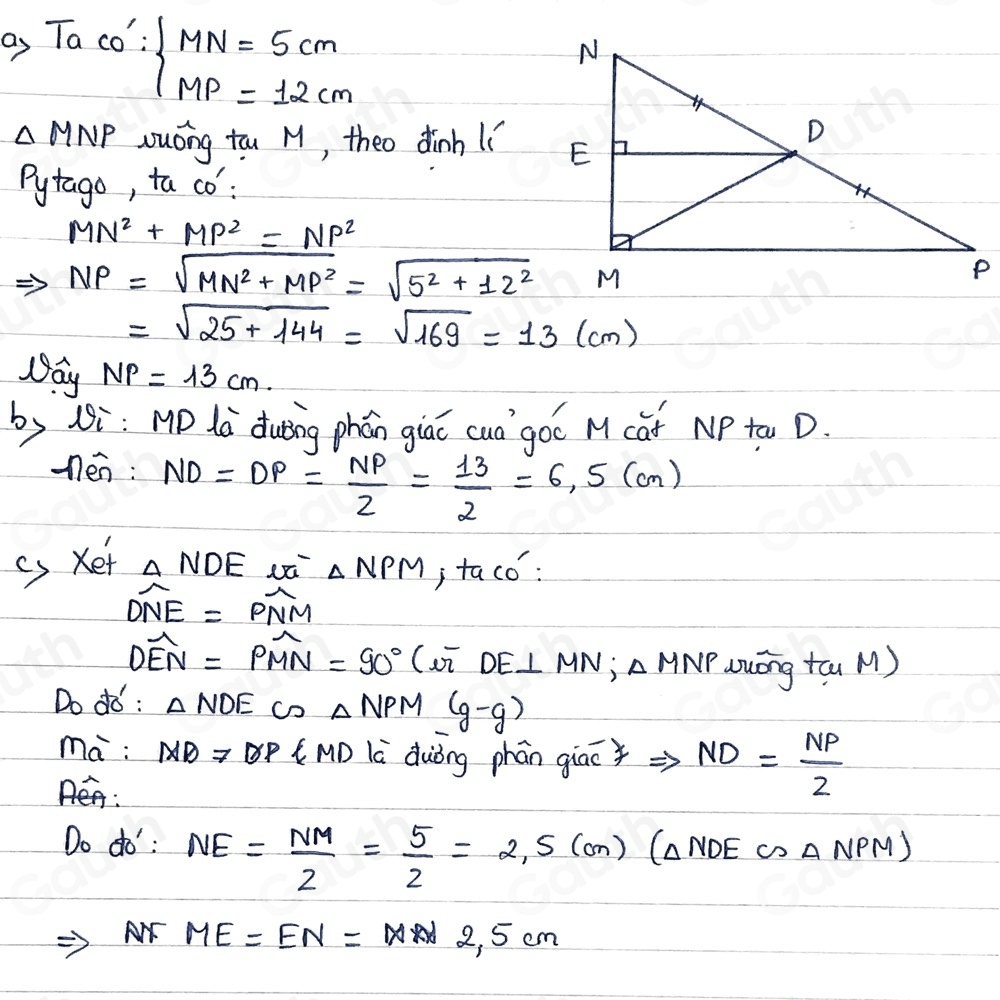 a> Ta có: { MN = 5 cm
MP = 12 cm
Δ MNP vuông tại M, theo định lí
Pytago, ta có:
MN² + MP² = NP²
=> NP = √(MN² + MP²) = √(5² + 12²)
= √(25 + 144) = √169 = 13 (cm)
Vậy NP = 13 cm.
N
E
D
M
P
b> Vì: MD là đường phân giác của góc M cắt NP tại D.
nên: ND = DP = NP/2 = 13/2 = 6,5 (cm)
c> Xét Δ NDE và Δ NPM, ta có:
DNE = PNM
DEN = PMN = 90° (vì DE ⊥ MN; Δ MNP vuông tại M)
Do đó: Δ NDE ∽ Δ NPM (g-g)
Mà: MD là đường phân giác => ND = NP/2
Nên:
Do đó: NE = NM/2 = 5/2 = 2,5 (cm) (Δ NDE ∽ Δ NPM)
=> ME = EN = 2,5 cm
Gauth